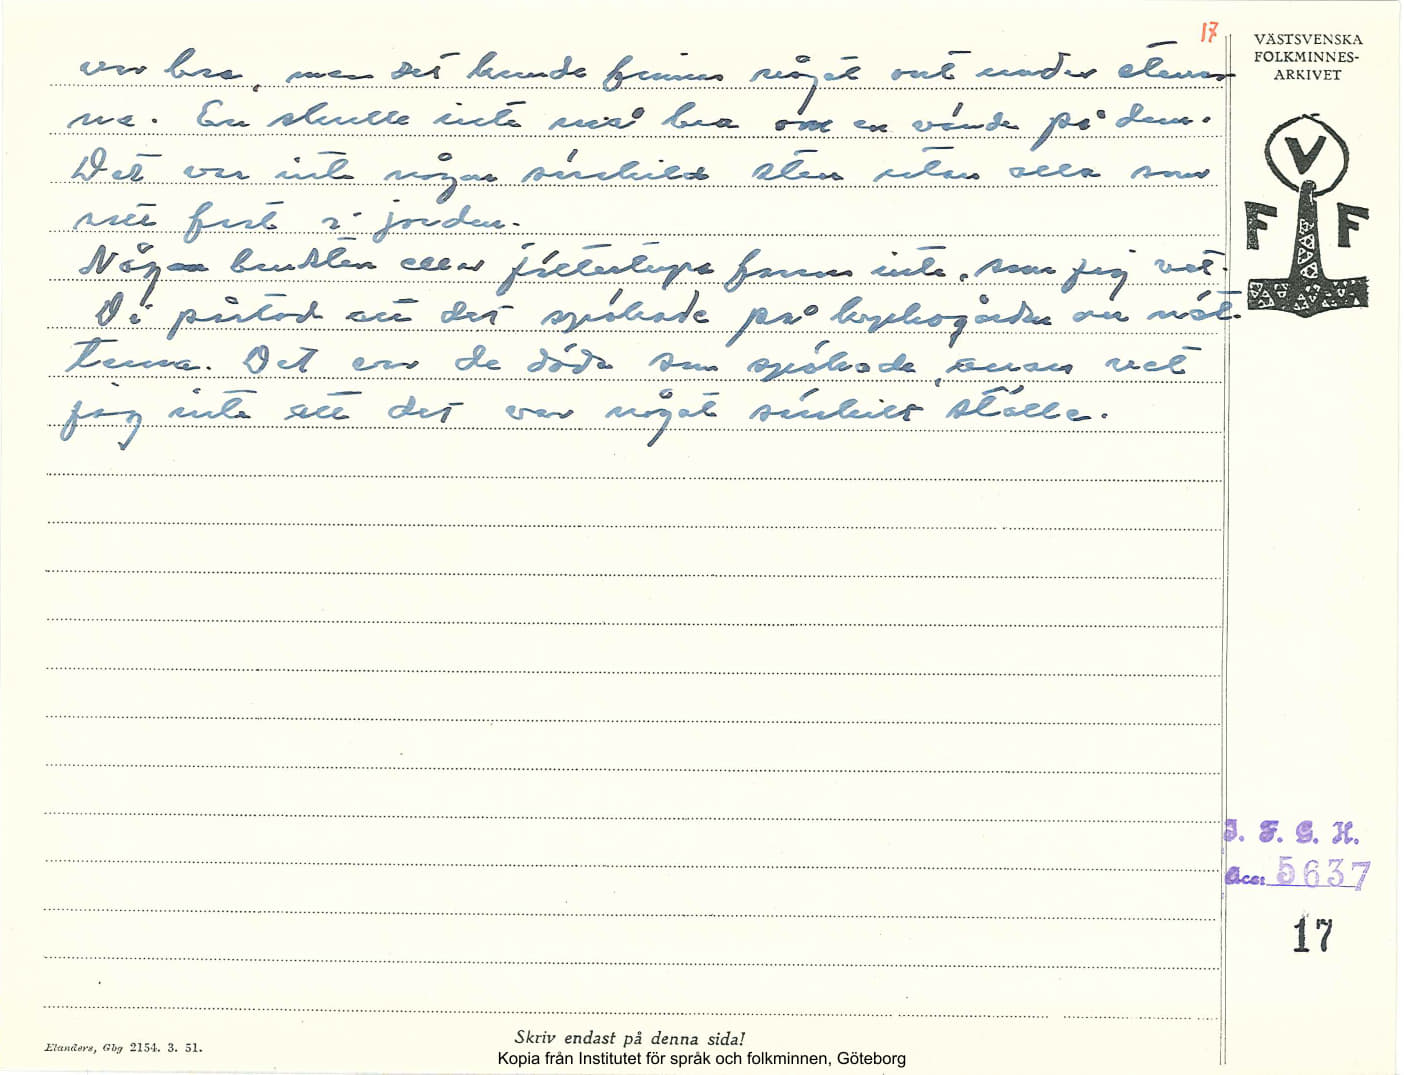 17
VÄSTSVENSKA
FOLKMINNES-
ARKIVET
var bra, men det kunde finnas något ont under stenar-
na. En skulle inte må bra om en vände på dem.
Det var inte någon särskild sten utan alla som
satt fast i jorden.
Någon bautasten eller jättestuga fanns inte, som jag vet.
Di påstod att det spökade på kyrkogården om nät-
terna. Det var de döda som spökade, annars vet
jag inte att det var något särskilt ställe.
V
F F
I. F. G. H.
Acc. 5637
17
Skriv endast på denna sida!
Elanders, Gbg 2154. 3. 51.
Kopia från Institutet för språk och folkminnen, Göteborg